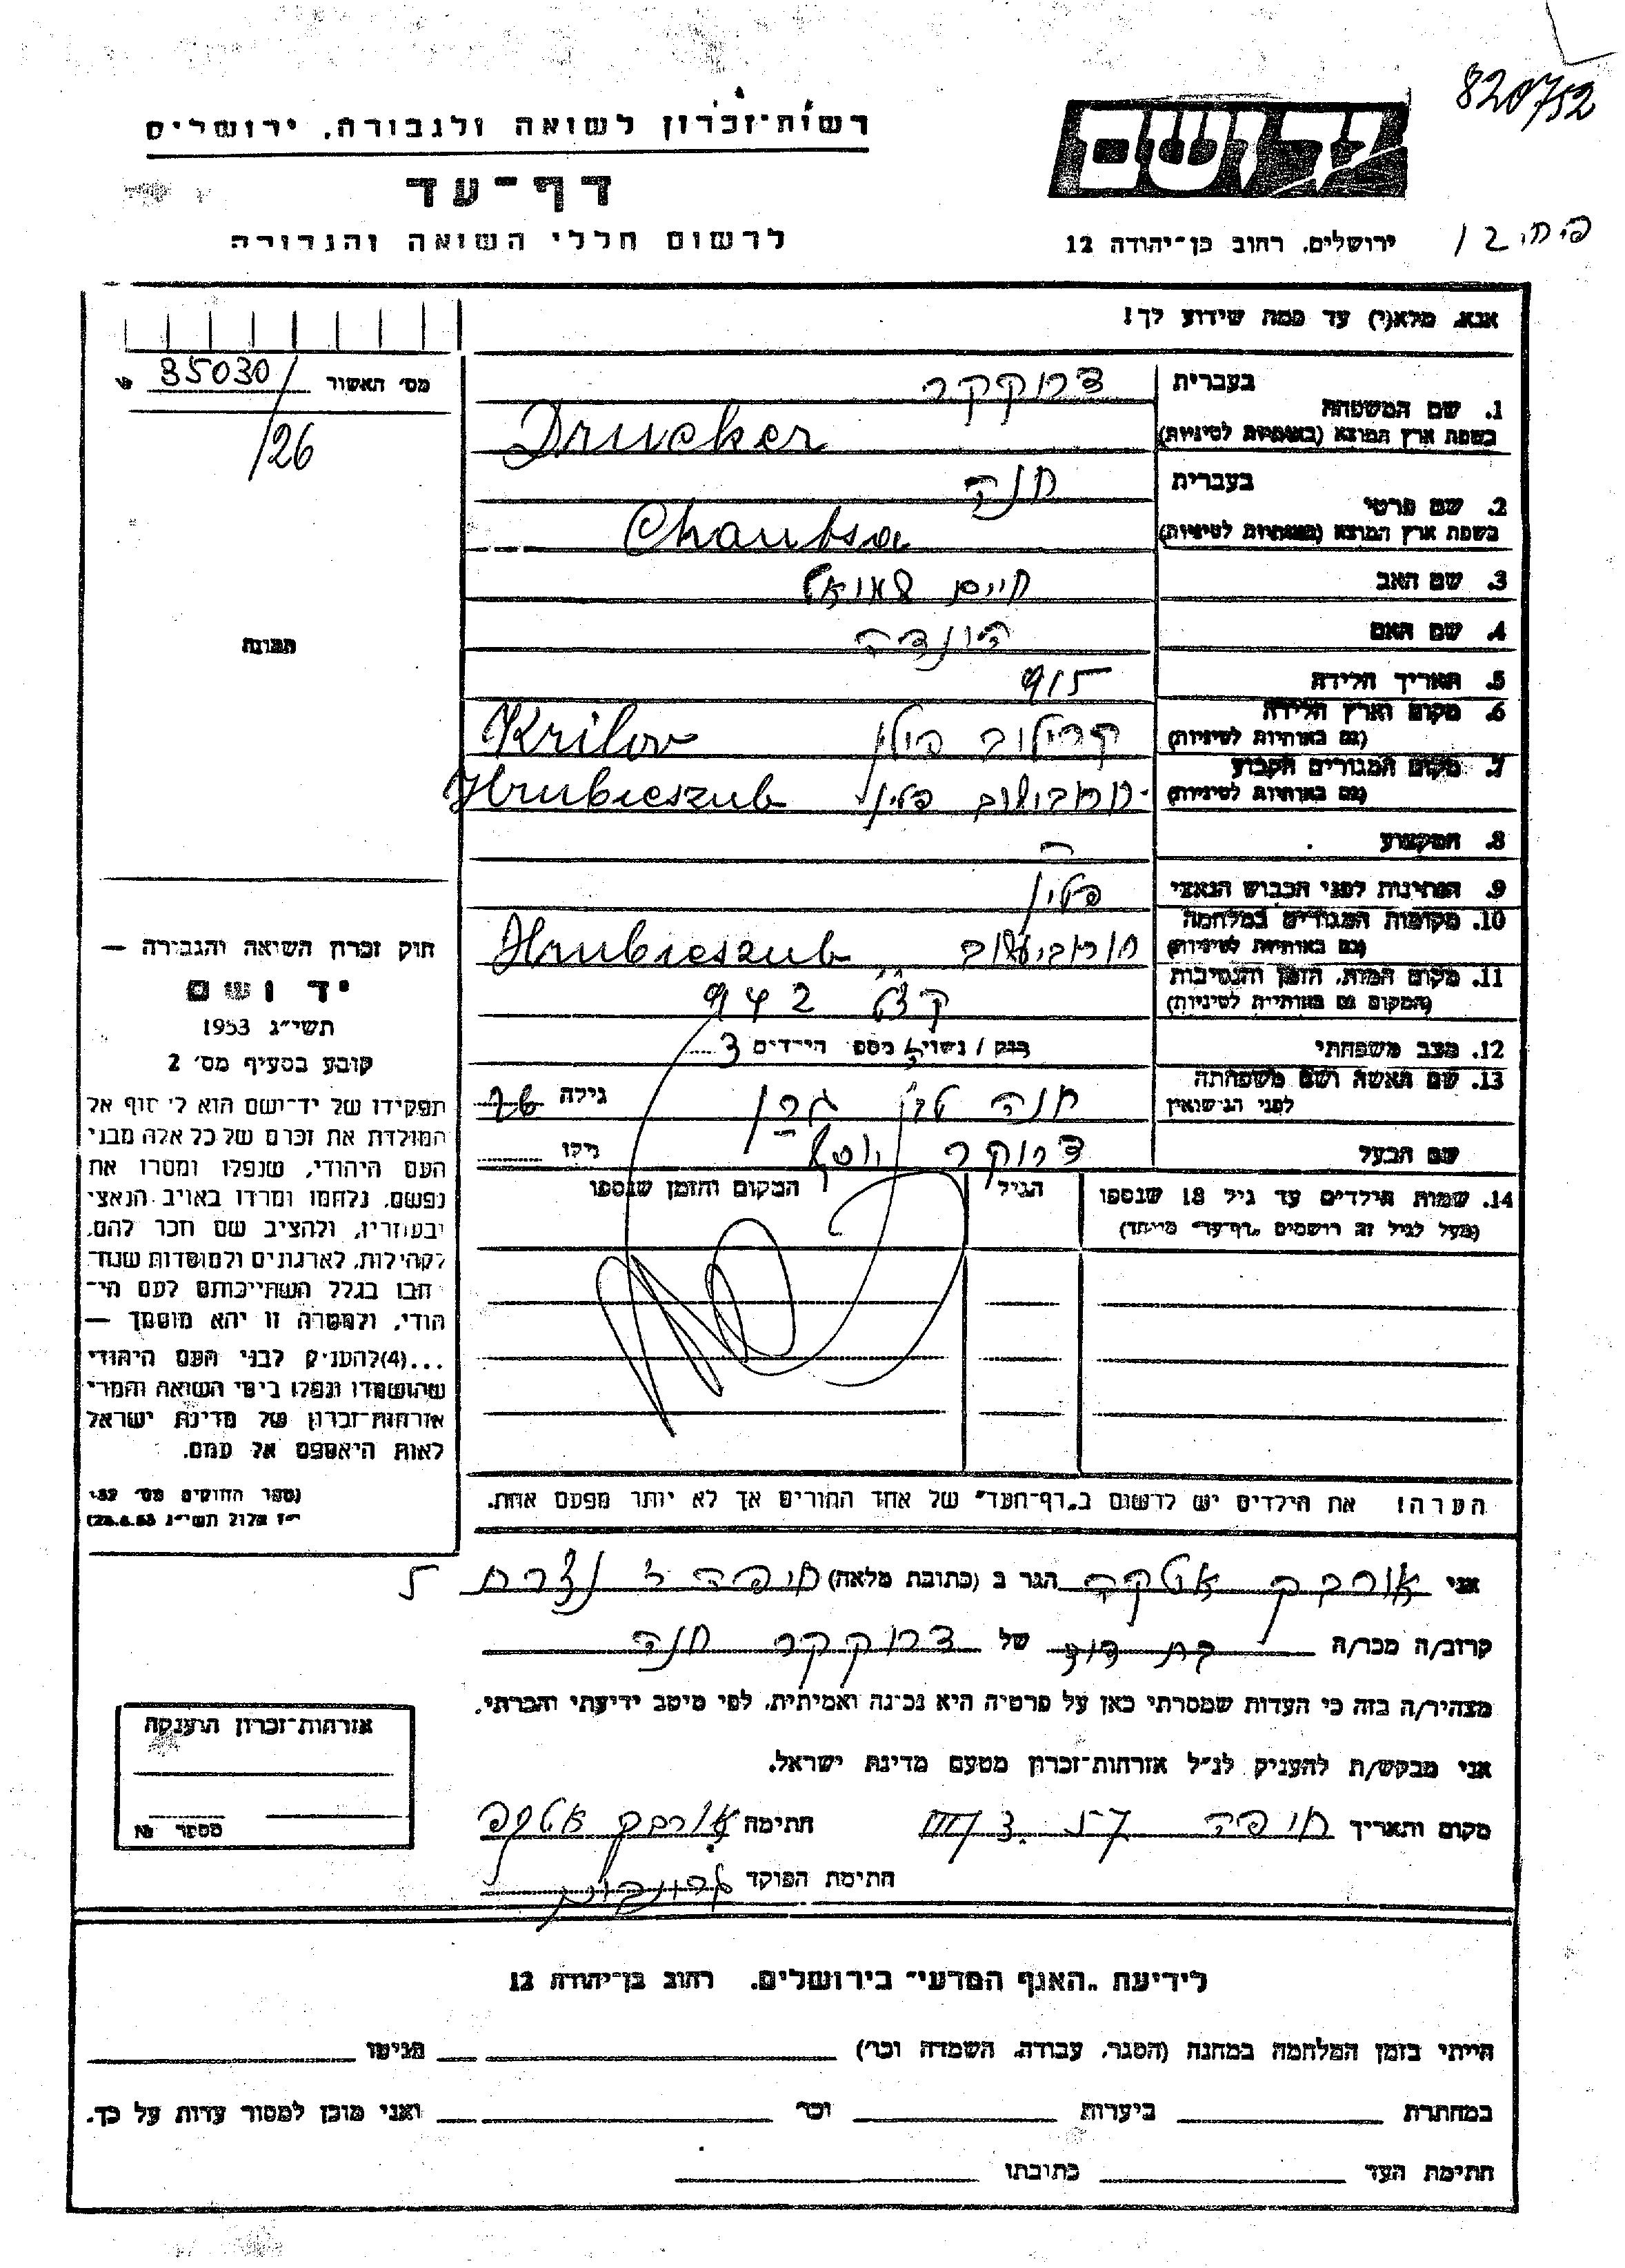 820752
רשות־זכרון לשואה ולגבורה, ירושלים
דף־עד
לרשום חללי השואה והגבורה
ירושלים, רחוב בן־יהודה 12
אנא, מלא(י) עד כמה שידוע לך!
מס' האשור 35030 №
/26
1. שם המשפחה
בעברית דרוקקר
בשפת ארץ המוצא (באותיות לטיניות) Drucker
2. שם פרטי
בעברית חנה
בשפת ארץ המוצא (באותיות לטיניות)
3. שם האב חיים שמואל
4. שם האם הינדה
5. תאריך הלידה 915
6. מקום וארץ הלידה
(גם באותיות לטיניות) קרילוב פולין Krilov
7. מקום המגורים הקבוע
(גם באותיות לטיניות) הרובישוב פולין Hrubieszub
8. המקצוע
9. הנתינות לפני הכבוש הנאצי פולין
10. מקומות המגורים במלחמה
(גם באותיות לטיניות) הרובישוב Hrubieszub
11. מקום המות, הזמן והנסיבות
(המקום גם באותיות לטיניות) 942
12. מצב משפחתי רוק / נשוי מספר הילדים 3
13. שם האשה ושם משפחתה
לפני הנישואין חנה גילה
שם הבעל דרוקר יוסף גילו
14. שמות הילדים עד גיל 18 שנספו הגיל המקום והזמן שנספו
(מעל לגיל זה רושמים „דף־עד" מיוחד)
הערה! את הילדים יש לרשום ב„דף־העד" של אחד ההורים אך לא יותר מפעם אחת.
תמונה
חוק זכרון השואה והגבורה —
יד ושם
תשי"ג 1953
קובע בסעיף מס' 2
תפקידו של יד־ושם הוא לאסוף אל
המולדת את זכרם של כל אלה מבני
העם היהודי, שנפלו ומסרו את
נפשם, נלחמו ומרדו באויב הנאצי
ובעוזריו, ולהציב שם וזכר להם,
לקהילות, לארגונים ולמוסדות שנח־
רבו בגלל השתייכותם לעם הי־
הודי, ולמטרה זו יהא מוסמך —
...(4)להעניק לבני העם היהודי
שהושמדו ונפלו בימי השואה והמרי
אזרחות־זכרון של מדינת ישראל
לאות היאספם אל עמם.
(ספר החוקים מס' 132
י"ז אלול תשי"ג 28.8.53)
אני אורבק אטקה הגר ב (כתובת מלאה) חיפה נצרת 5
קרוב/ה מכר/ה בת דוד של דרוקקר חנה
מצהיר/ה בזה כי העדות שמסרתי כאן על פרטיה היא נכונה ואמיתית, לפי מיטב ידיעתי והכרתי.
אני מבקש/ת להעניק לנ"ל אזרחות־זכרון מטעם מדינת ישראל.
מקום ותאריך חיפה חתימה אורבק אטקה
חתימת הפוקד
אזרחות־זכרון הוענקה
מספר №
לידיעת „האגף המדעי" בירושלים. רחוב בן־יהודה 12
הייתי בזמן המלחמה במחנה (הסגר, עבודה, השמדה וכו') בגיטו
במחתרת ביערות וכו' ואני מוכן למסור עדות על כך.
חתימת העד כתובתו